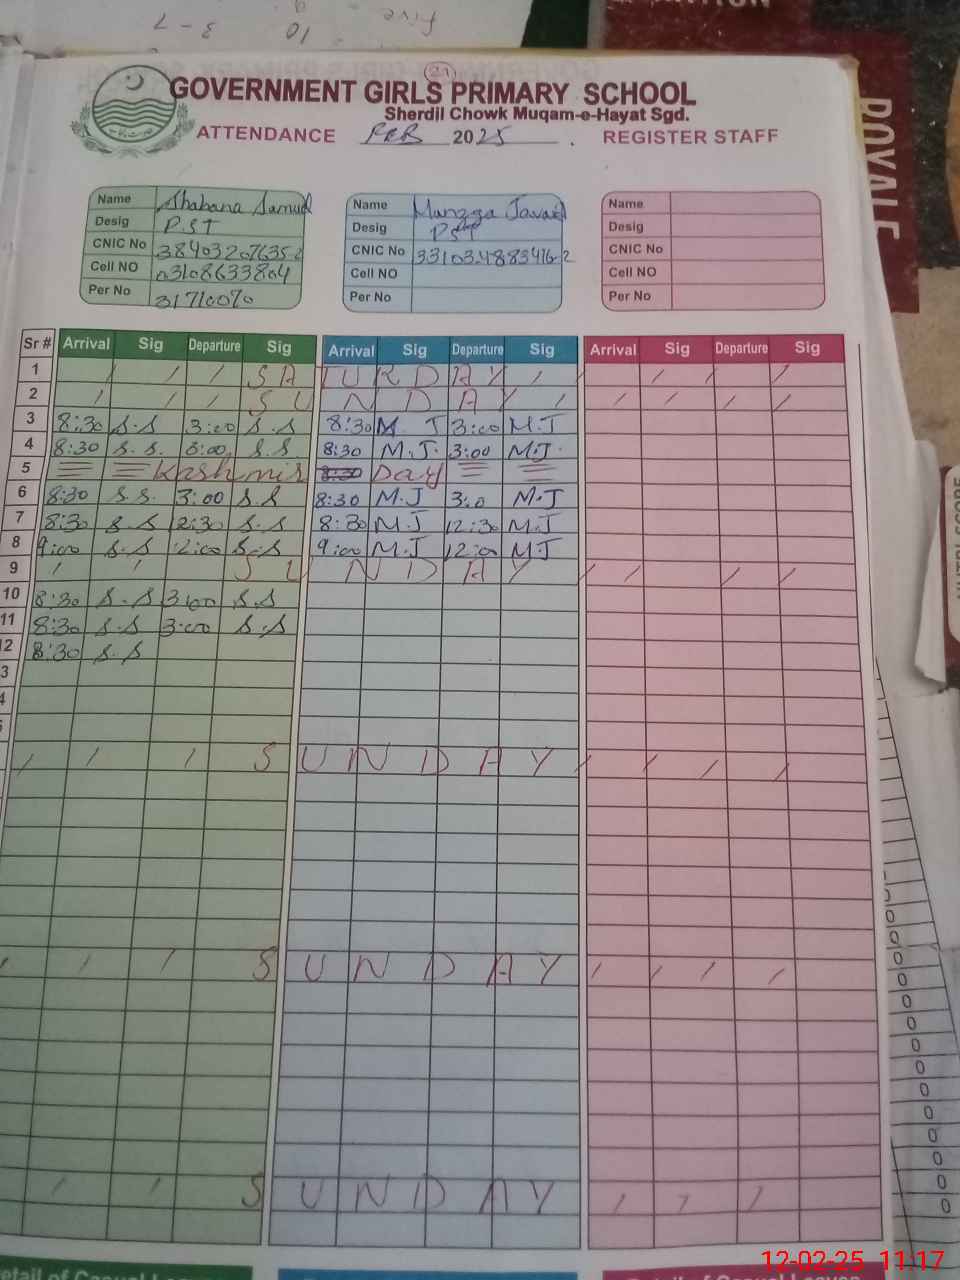 Five 10 3-7
21
GOVERNMENT GIRLS PRIMARY SCHOOL
Sherdil Chowk Muqam-e-Hayat Sgd.
ATTENDANCE FEB 2025 . REGISTER STAFF
Name Shabana Samud
Desig P.ST
CNIC No
Cell NO 03108633804
Per No 31710070
Name Javaid
Desig PST
CNIC No
Cell NO
Per No
Name
Desig
CNIC No
Cell NO
Per No
Sr # Arrival Sig Departure Sig Arrival Sig Departure Sig Arrival Sig Departure Sig
1 / / / SATURDAY / / / /
2 / / / SUNDAY / / / / / /
3 8:30 S.S 3:00 S.S 8:30 M.J 3:00 M.J
4 8:30 S.S. 3:00 S.S. 8:30 M.J. 3:00 M.J.
5 Kashmir 8:30 Day
6 8:30 S.S. 3:00 S.S 8:30 M.J 3:0 M.J
7 8:30 S.S 12:30 S.S 8:30 M.J 12:30 M.J
8 9:00 S.S 12:00 S.S 9:00 M.J 12:00 M.J
9 / / SUNDAY / / / /
10 8:30 S.S 3:00 S.S
11 8:30 S.S 3:00 S.S
12 8:30 S.S
3
4
5
/ / / SUNDAY / / / /
/ / / SUNDAY / / / /
/ / SUNDAY / / /
etail of Casual
ROYALE
12-02-25 11:17